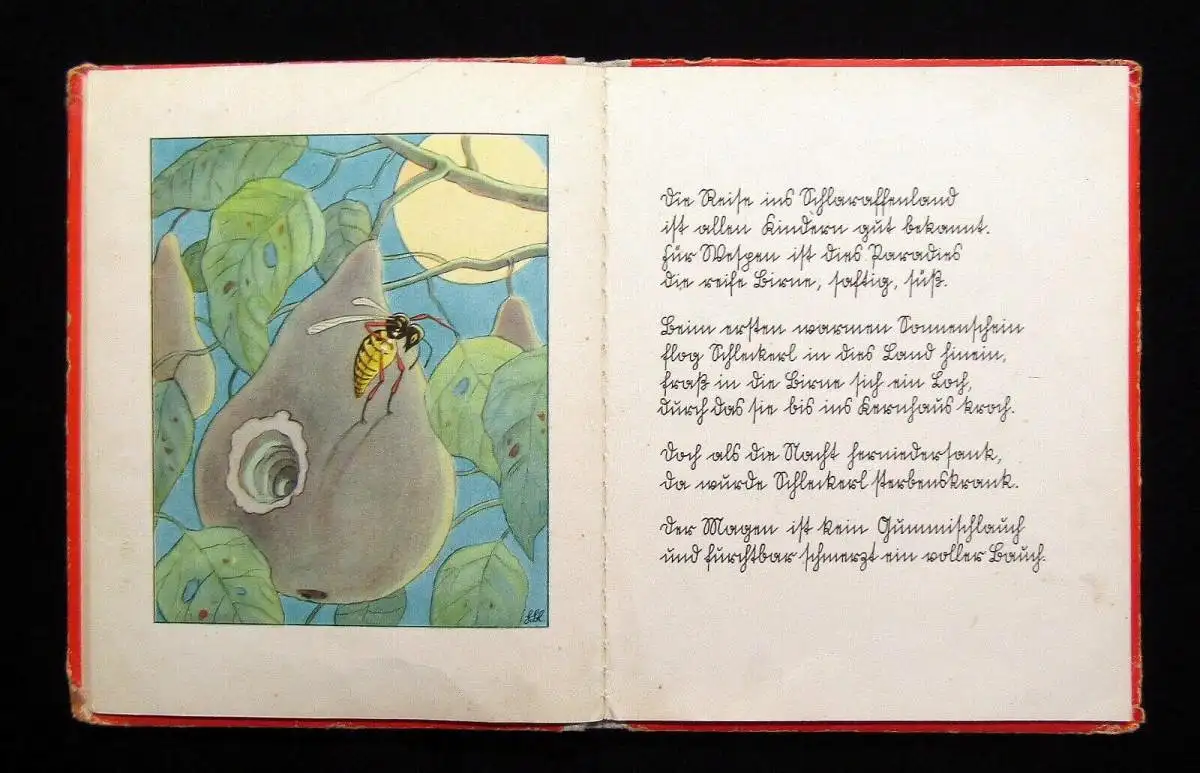 Die Reise ins Schlaraffenland
ist allen Kindern gut bekannt.
Für Wespen ist dies Paradies
die reife Birne, saftig, süß.
Beim ersten warmen Sonnenschein
flog Schleckerl in dies Land hinein,
fraß in die Birne sich ein Loch,
durch das sie bis ins Kernhaus kroch.
Doch als die Nacht herniedersank,
da wurde Schleckerl sterbenskrank.
Der Magen ist kein Gummischlauch
und furchtbar schmerzt ein voller Bauch.